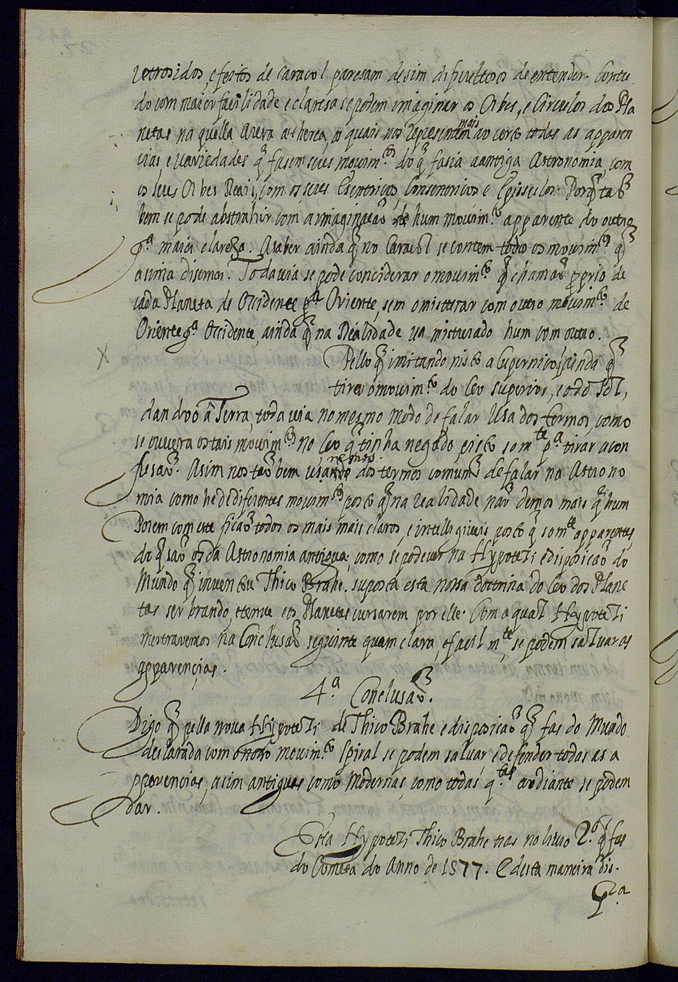 retrosidos, e feitos de caracol paresam de sim dificultosos de entender. Contu
do com maior facilidade e claresa se podem imaginar os Orbes, e Circulos dos Pla
netas na quella Aurea etherea, os quais nos representão mais ao certo todas as apparen
cias e variedades q̃ fasem seus movim.tos do q̃ fasia a antiga Astronomia com
os seus Orbes Reais, com os seus Excentricos Consentricos e Episiculos. Porq̃ tã
bem se pode abstrahir com a imaginação de hum movim.to apparente do outro
p.a mais clareza. A saber ainda q̃ no Caracol se contem todos os movim.tos q̃
asima disemos. Todavia se pode conciderar o movim.to q̃ chamaõ pprio de
cada Planeta de Occidente p.a Oriente, sem o misturar com outro movim.to de
Oriente p.a Occidente, ainda q̃ na Realidade va misturado hum com outro.
Pello q̃ imitando nisto a Copernico, q̃ ainda q̃
tirou o movim.to do Ceo superior, e do Sol,
dandoo â Terra, toda via no mesmo modo de falar Usa dos termos como
se ouvera os tais movim.tos no Ceo q̃ tinha negado e isto som.te p.a tirar a con
fusaõ. Asim nos taõ bem usaremos dos termos comuns de falar na Astrono
mia como he de diferentes movim.tos posto q̃ na realidade naõ demos mais q̃ hum
Porem com este ficaõ todos os mais mais claros, e intelligiveis, posto q̃ som.te apparentes
do q̃ saõ os da Astronomia antigua, como se pode ver na Hypotesi e disposicaõ do
Mundo q̃ inventou Thico Brahe. suposta esta nossa doctrina do Ceo dos Plane
tas ser brando, e tenue e os Planetas cursarem por elle. Com a qual Hypotesi
mostraremos na Conclusaõ seguinte quam clara e facil m.te se podem saluar as
apparencias.
4.a Conclusaõ.
Digo q̃ pella nova Hypotesi de Thico Brahe e disposicaõ q̃ fas do Mundo
declarada com o nosso movim.to spiral se podem saluar e defender todas as a
pparencias, asim antiguas como Modernas, como todas q.tas ao diante se podem
dar.
Esta Hypotesi Thico Brahe tras no livro 2.o q̃ fas
do Cometa do Anno de 1577. E desta maneira dis.